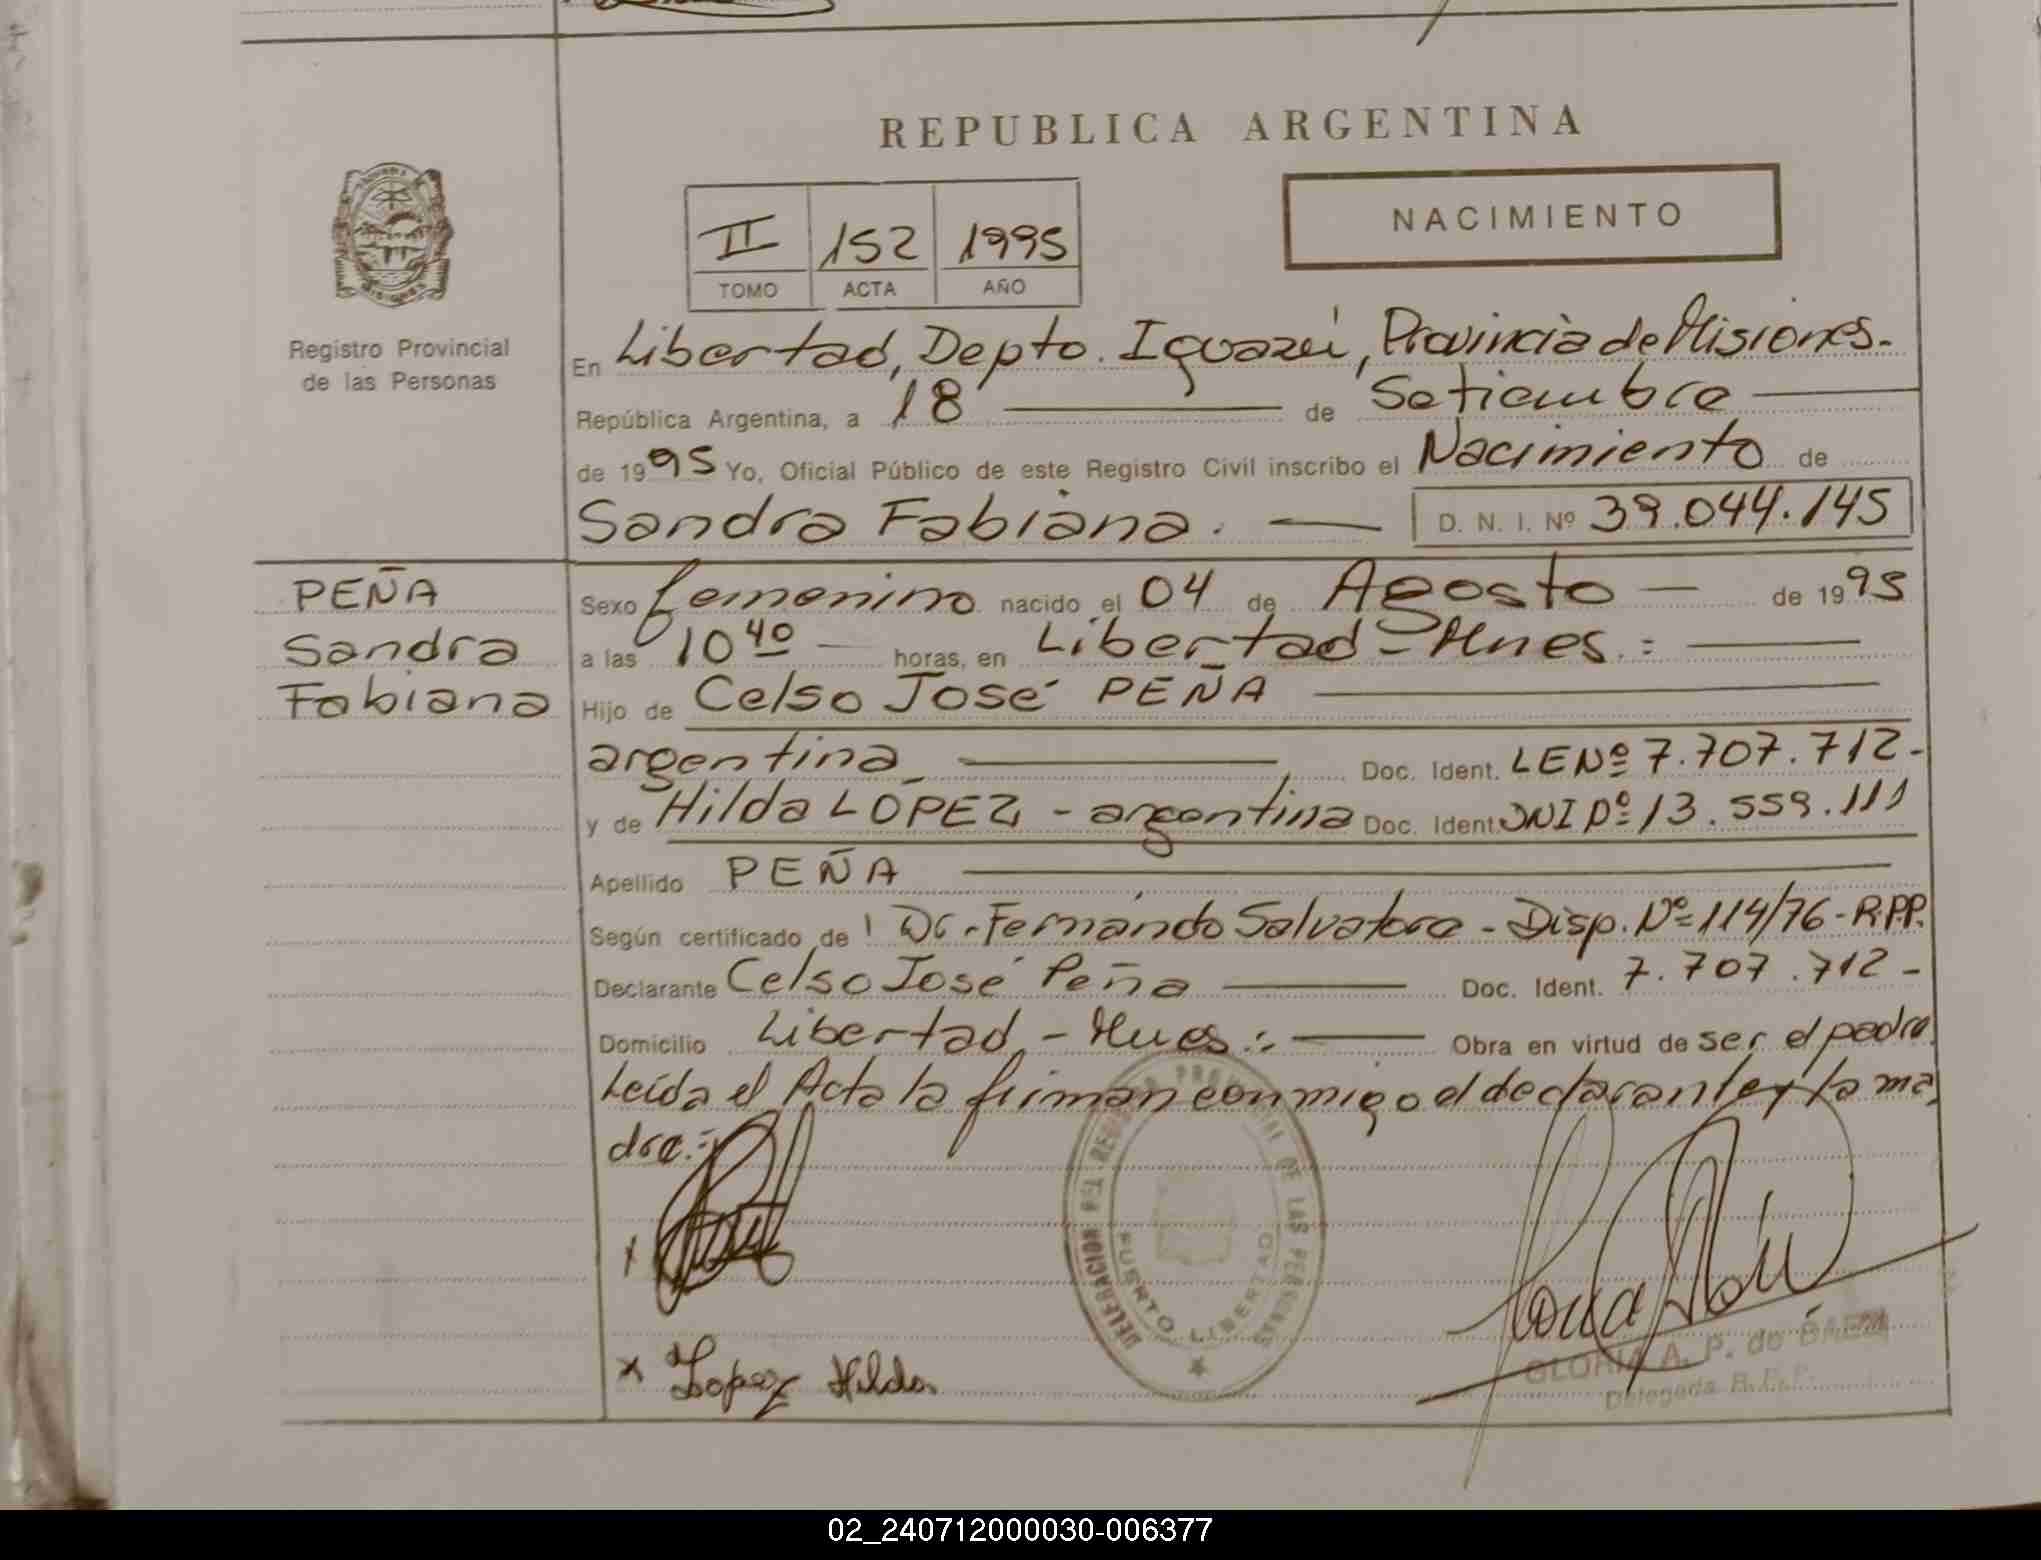 REPUBLICA ARGENTINA
NACIMIENTO
II 152 1995
TOMO ACTA AÑO
Registro Provincial
de las Personas
En Libertad, Depto. Iguazú, Provincia de Misiones.-
República Argentina, a 18 de Setiembre
de 1995 Yo, Oficial Público de este Registro Civil inscribo el Nacimiento de
Sandra Fabiana. D. N. I. Nº 39.044.145
PEÑA
Sandra
Fabiana
Sexo femenino nacido el 04 de Agosto - de 1995
a las 10 40 horas, en Libertad - Mnes.:
Hijo de Celso José PEÑA
argentina Doc. Ident. LE Nº 7.707.712-
y de Hilda LÓPEZ - argentina Doc. Ident. DNI Nº 13.559.111
Apellido PEÑA
Según certificado de Dr. Fernando Salvatore - Disp. Nº 114/76 - R.P.P.
Declarante Celso José Peña Doc. Ident. 7.707.712-
Domicilio Libertad - Mnes.:. Obra en virtud de ser el padre
Leída el Acta la firman conmigo el declarante y la ma
dre.-
x
x Lopez Hilda
DELEGACION DEL REGISTRO PROVINCIAL DE LAS PERSONAS
PUERTO LIBERTAD
GLORIA A. P. de BAEM
Delegada R.P.P.
02_240712000030-006377